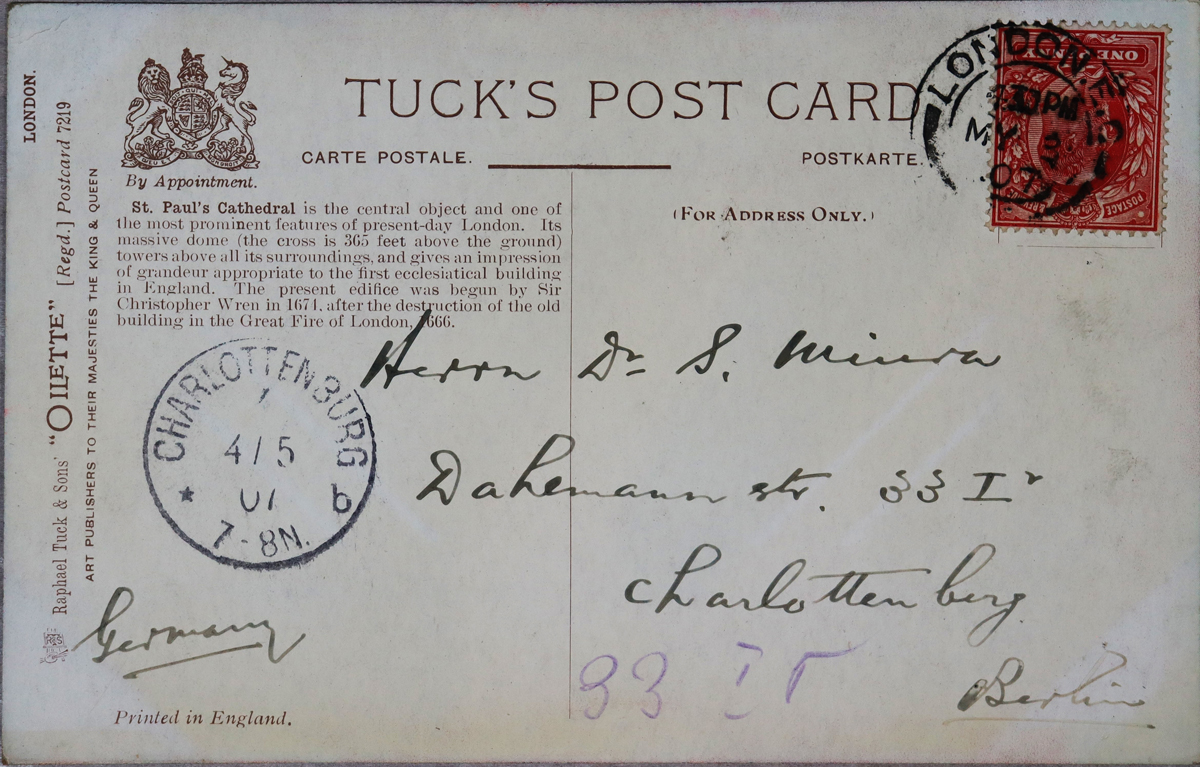 LONDON.
Raphael Tuck & Sons' "OILETTE" [Regd.] Postcard 7219
ART PUBLISHERS TO THEIR MAJESTIES THE KING & QUEEN
By Appointment.
TUCK'S POST CARD
CARTE POSTALE.
POSTKARTE.
(FOR ADDRESS ONLY.)
St. Paul's Cathedral is the central object and one of
the most prominent features of present-day London. Its
massive dome (the cross is 365 feet above the ground)
towers above all its surroundings, and gives an impression
of grandeur appropriate to the first ecclesiatical building
in England. The present edifice was begun by Sir
Christopher Wren in 1674, after the destruction of the old
building in the Great Fire of London, 1666.
LONDON. E.C
MY
07
ONE PENNY
POSTAGE
CHARLOTTENBURG
4/5
07
7-8N.
* b
Herrn Dr S. Miura
Dahlmannstr. 33 Ir
Charlottenberg
Berlin
Germany
33 I r
Printed in England.